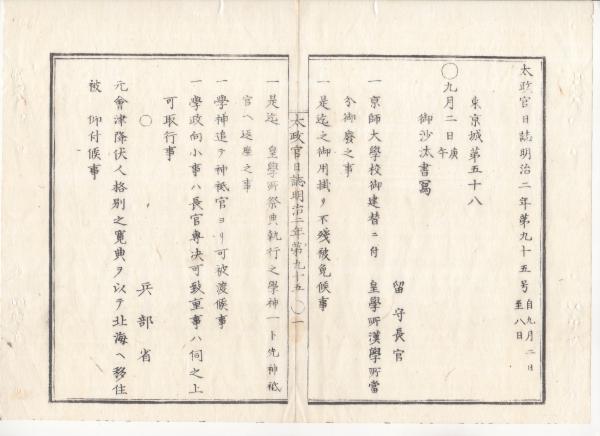 太政官日誌明治二年第九十五号 自九月二日 至八日
東京城第五十八
〇九月二日庚午
御沙汰書寫
留守長官
一 京師大學校御建替ニ付 皇學所漢學所當
分御廢之事
一 是迄之御用掛リ不殘被免候事
太政官日誌明治二年第九十五 〇一
一 是迄 皇學所祭典執行之學神一ト先神祇
官ヘ返座之事
一 學神追テ神祇官ヨリ可被渡候事
一 學政向小事ハ長官專决可致重事ハ伺之上
可取行事
〇
兵部省
元會津降伏人格別之寛典ヲ以テ北海ヘ移住
被 仰付候事